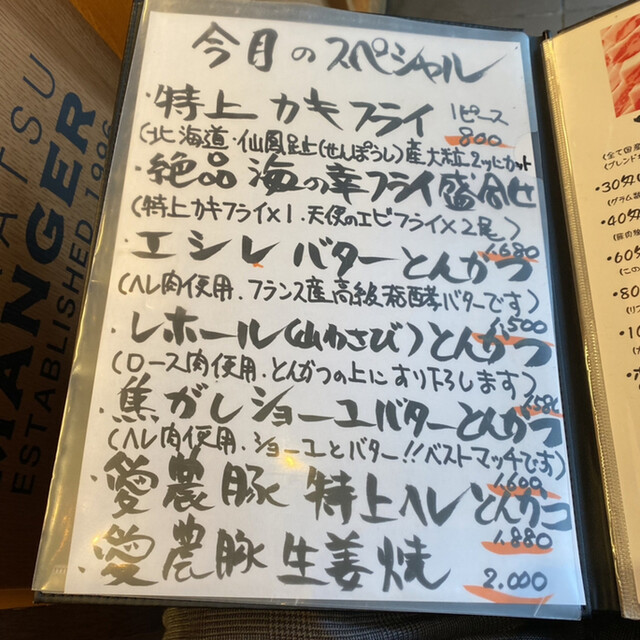 今月のスペシャル
・特上カキフライ 1ピース
800
(北海道・仙鳳趾(せんぽうし)産大粒2ツにカット
・絶品海の幸フライ盛合せ
(特上カキフライ×1.天使のエビフライ×2尾)
1,680
・エシレバターとんかつ
(ヘレ肉使用.フランス産高級発酵バターです)
1,500
・レホール(山わさび)とんかつ
(ロース肉使用.とんかつの上にすり下ろします)
・焦がしショーユバターとんかつ
(ヘレ肉使用.ショーユとバター!!ベストマッチです)
1,600
・愛農豚特上ヘレとんカツ
1,880
・愛農豚生姜焼
2,000
MANGER
ESTABLISHED 1996
(全て国産
(ブレンド
・30
・40
・60
・80